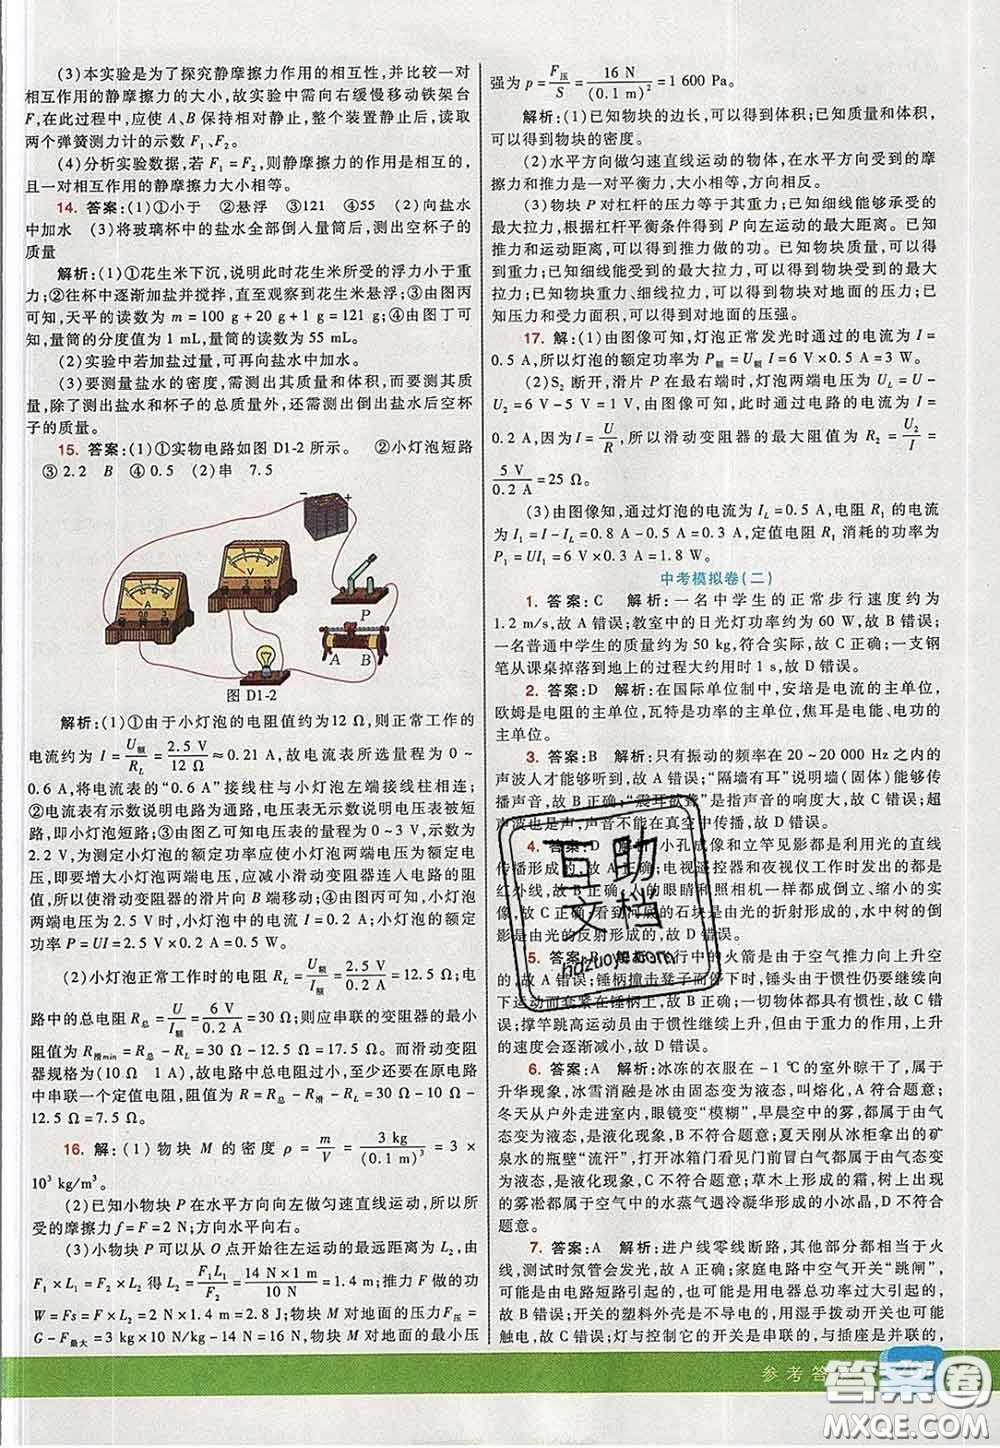 (3)本实验是为了探究静摩擦力作用的相互性,并比较一对
相互作用的静摩擦力的大小,故实验中需向右缓慢移动铁架台
F,在此过程中,应使 A、B 保持相对静止,整个装置静止后,读取
两个弹簧测力计的示数 F₁、F₂。
(4)分析实验数据,若 F₁=F₂,则静摩擦力的作用是相互的,
且一对相互作用的静摩擦力大小相等。
14. 答案:(1)①小于 ②悬浮 ③121 ④55 (2)向盐水
中加水 (3)将玻璃杯中的盐水全部倒人量筒后,测出空杯子的
质量
解析:(1)①花生米下沉,说明此时花生米所受的浮力小于重
力;②往杯中逐渐加盐并搅拌,直至观察到花生米悬浮;③由图丙
可知,天平的读数为 m=100 g+20 g+1 g=121 g;④由图丁可
知,量筒的分度值为 1 mL,量筒的读数为 55 mL。
(2)实验中若加盐过量,可再向盐水中加水。
(3)要测量盐水的密度,需测出其质量和体积,而要测其质
量,除了测出盐水和杯子的总质量外,还需测出倒出盐水后空杯
子的质量。
15. 答案:(1)①实物电路如图 D1-2 所示。 ②小灯泡短路
③2.2 B ④0.5 (2)串 7.5
A V P A B
图 D1-2
解析:(1)①由于小灯泡的电阻值约为12 Ω,则正常工作的
电流约为 I=U额/R_L=2.5 V/12 Ω≈0.21 A,故电流表所选量程为 0~
0.6 A,将电流表的“0.6 A”接线柱与小灯泡左端接线柱相连;
②电流表有示数说明电路为通路,电压表无示数说明电压表被短
路,即小灯泡短路;③由图乙可知电压表的量程为 0~3 V,示数为
2.2 V,为测定小灯泡的额定功率应使小灯泡两端电压等于额定电
压,即要增大小灯泡两端电压,应减小滑动变阻器连入电路的电阻
值,所以使滑动变阻器的滑片向 B 端移动;④由图丙可知,小灯泡
两端电压为 2.5 V 时,小灯泡中的电流 I=0.2 A,小灯泡的额定
功率 P=UI=2.5 V×0.2 A=0.5 W。
(2)小灯泡正常工作时的电阻 R_L=U额/I额=2.5 V/0.2 A=12.5 Ω;电
路中的总电阻 R总=U/I额=6 V/0.2 A=30 Ω;则应串联的变阻器的最小
阻值为 R滑min=R总-R_L=30 Ω-12.5 Ω=17.5 Ω。而滑动变阻
器规格为(10 Ω 1 A),致使电路中总电阻过小,还要在原电路中
串联一个定值电阻,阻值 R=R总-R滑-R_L=30 Ω-10 Ω-
12.5 Ω=7.5 Ω。
16. 解:(1)物块 M 的密度 ρ=m/V=3 kg/(0.1 m)³=3×
10³ kg/m³。
(2)已知小物块 P 在水平方向向左做匀速直线运动,所以所
受的摩擦力 f=F=2 N;方向水平向右。
(3)小物块 P 可以从 O 点开始往左运动的最大距离为 L₂,由
F₁×L₁=F₂×L₂ 得 L₂=F₁L₁/F₂=14 N×1 m/10 N=1.4 m;推力 F 做的功
W=Fs=F×L₂=2 N×1.4 m=2.8 J;物块 M 对地面的压力F压=
G-F最大=3 kg×10 N/kg-14 N=16 N;物块 M 对地面的最小压
强为 p=F压/S=16 N/(0.1 m)²=1 600 Pa。
解析:(1)已知物块的边长,可以得到体积;已知质量和体积,
可以得到物块的密度。
(2)水平方向做匀速直线运动的物体,在水平方向受到的摩
擦力和推力是一对平衡力,大小相等,方向相反。
(3)物块 P 对杠杆的压力等于其重力;知道细绳能够承受的
最大拉力,根据杠杆平衡条件得到 P 向左运动的最大距离。已知
推力和运动距离,可以得到推力做的功。已知物块质量,可以得
到重力;已知物块重力、细线拉力,可以得到物块对地面的压力;
已知压力和受力面积,可以得到物块对地面的压强。
17. 解:(1)由图像可知,灯泡正常发光时通过的电流为 I=
0.5 A,所以灯泡的额定功率为 P额=U额 I=6 V×0.5 A=3 W。
(2)S₂ 断开,滑片 P 在最右端时,灯泡两端电压为 U_L=U-
U₂=6 V-5 V=1 V,由图像可知,此时通过电路的电流为 I=
0.2 A,因为 I=U/R,所以滑动变阻器的最大阻值为 R₂=U₂/I=
5 V/0.2 A=25 Ω。
(3)由图像知,通过灯泡的电流为 I_L=0.5 A,电阻 R₁ 的电流
为 I₁=I-I_L=0.8 A-0.5 A=0.3 A,定值电阻 R₁ 消耗的功率为
P₁=UI₁=6 V×0.3 A=1.8 W。
中考模拟卷(二)
1. 答案:C 解析:一名中学生的正常步行速度约为
1.2 m/s,故 A 错误;教室中的日光灯功率约为 60 W,故 B 错误;
一名普通中学生的质量约为 50 kg,符合实际,故 C 正确;一支钢
笔从课桌掉落到地上的过程大约用时 1 s,故 D 错误。
2. 答案:D 解析:在国际单位制中,安培是电流的主单位,
欧姆是电阻的主单位,瓦特是功率的主单位,焦耳是电能、电功的
主单位。
3. 答案:B 解析:只有振动的频率在 20~20 000 Hz之间的
声波人才能够听到,故 A 错误;“隔墙有耳”说明墙(固体)能够传
播声音,故 B 正确;“震耳欲聋”是指声音的响度大,故 C 错误;超
声波也是声,声音不能在真空中传播,故 D 错误。
4. 答案:D 解析:小孔成像和立竿见影都是利用光的直线
传播形成的,故 A 错误;电视遥控器和夜视仪工作时发出的都是
红外线,故 B 正确;人的眼睛和照相机一样都成倒立、缩小的实
像,故 C 正确;看到河底的石块是由光的折射形成的,水中树的倒
影由光的反射形成的,故 D 错误。
5. 答案:B 解析:飞行中的火箭是由于空气推力向上升空
的,故 A 错误;锤柄撞击凳子而停下时,锤头由于惯性仍要继续向
下运动而套紧在锤柄上,故 B 正确;一切物体都具有惯性,故 C 错
误;撑竿跳高运动员由于惯性继续上升,但由于重力的作用,上升
的速度会逐渐减小,故 D 错误。
6. 答案:A 解析:冰冻的衣服在-1 ℃的室外晾干了,属于
升华现象,冰雪消融是冰由固态变为液态,叫熔化,A 符合题意;
冬天从户外走进室内,眼镜变“模糊”,早晨空中的雾,都是由气态
变为液态,是液化现象,B 不符合题意;夏天刚从冰柜拿出来的矿
泉水的瓶壁“流汗”,打开冰箱门看到门前冒白气都是由气态变为
液态,是液化现象,C 不符合题意;草木上形成的霜、冬天树枝上
的雾凇都属于空气中的水蒸气遇冷凝华形成的小冰晶,D 不符合
题意。
7. 答案:A 解析:进户线零线断路,其他部分都相当于火
线,测试时氖管会发光,故 A 正确;家庭电路中空气开关“跳闸”,
可能是由电路短路引起的,也可能是用电器总功率过大引起的,
故 B 错误;开关的塑料外壳是不导电的,用湿手拨动开关也可能
触电,故 C 错误;灯与控制它的开关是串联的,与插座是并联的,
参考答
答案圈
MXQE.COM
互助
文档
hdzuoye.com